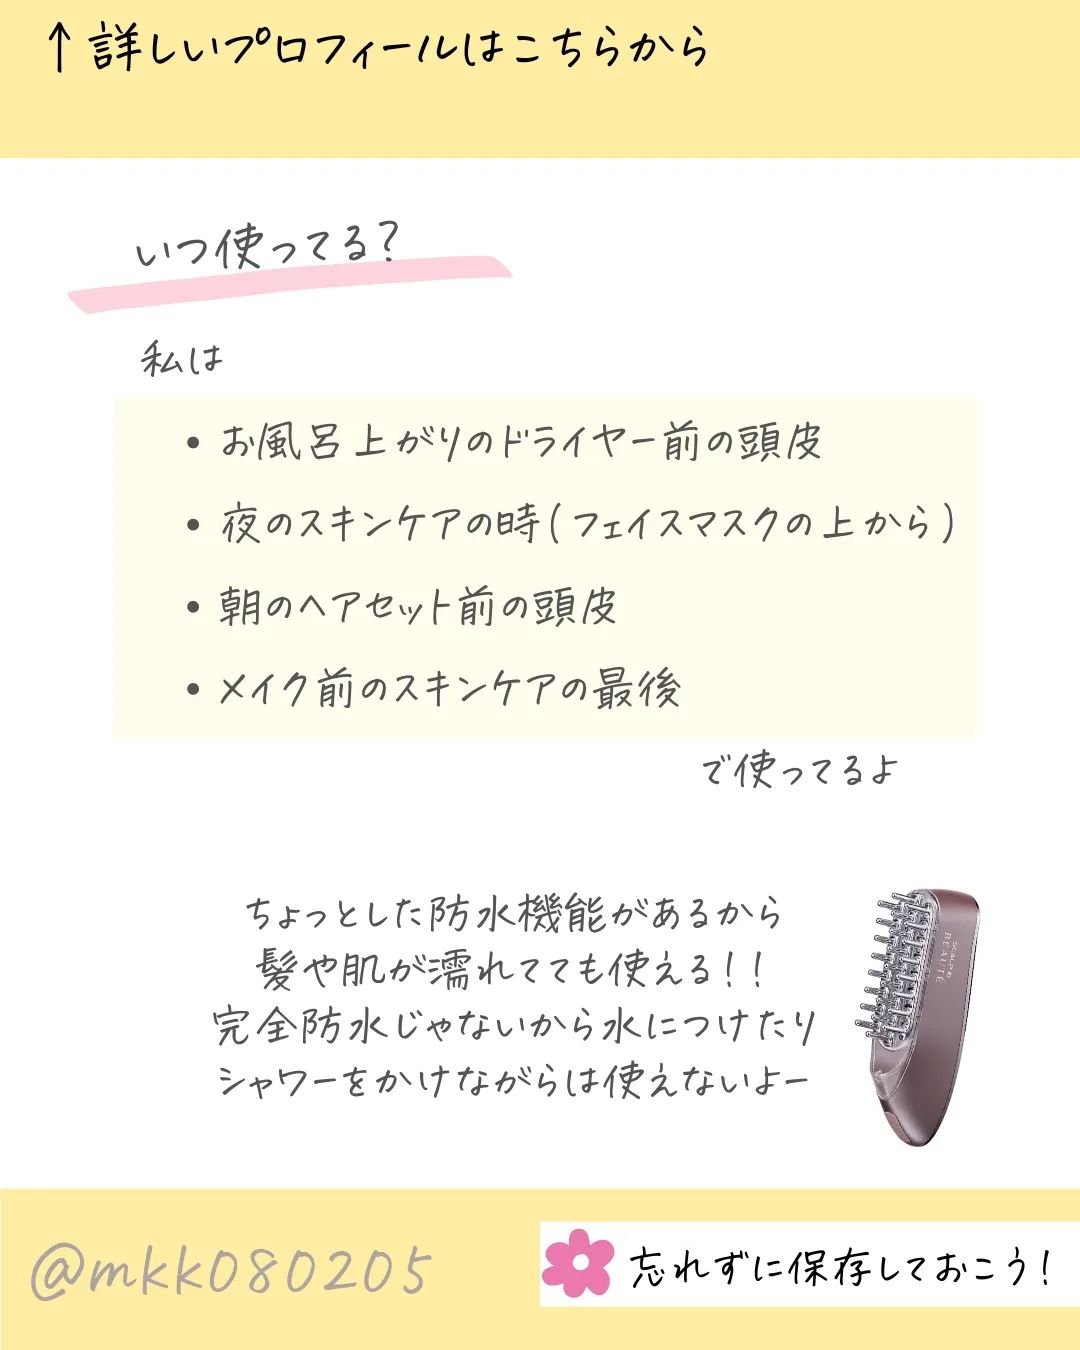 ↑詳しいプロフィールはこちらから
いつ使ってる?
私は
• お風呂上がりのドライヤー前の頭皮
• 夜のスキンケアの時(フェイスマスクの上から)
• 朝のヘアセット前の頭皮
• メイク前のスキンケアの最後
で使ってるよ
ちょっとした防水機能があるから
髪や肌が濡れてても使える!!
完全防水じゃないから水につけたり
シャワーをかけながらは使えないよー
BEAUTÉ
@mkk080205
忘れずに保存しておこう!